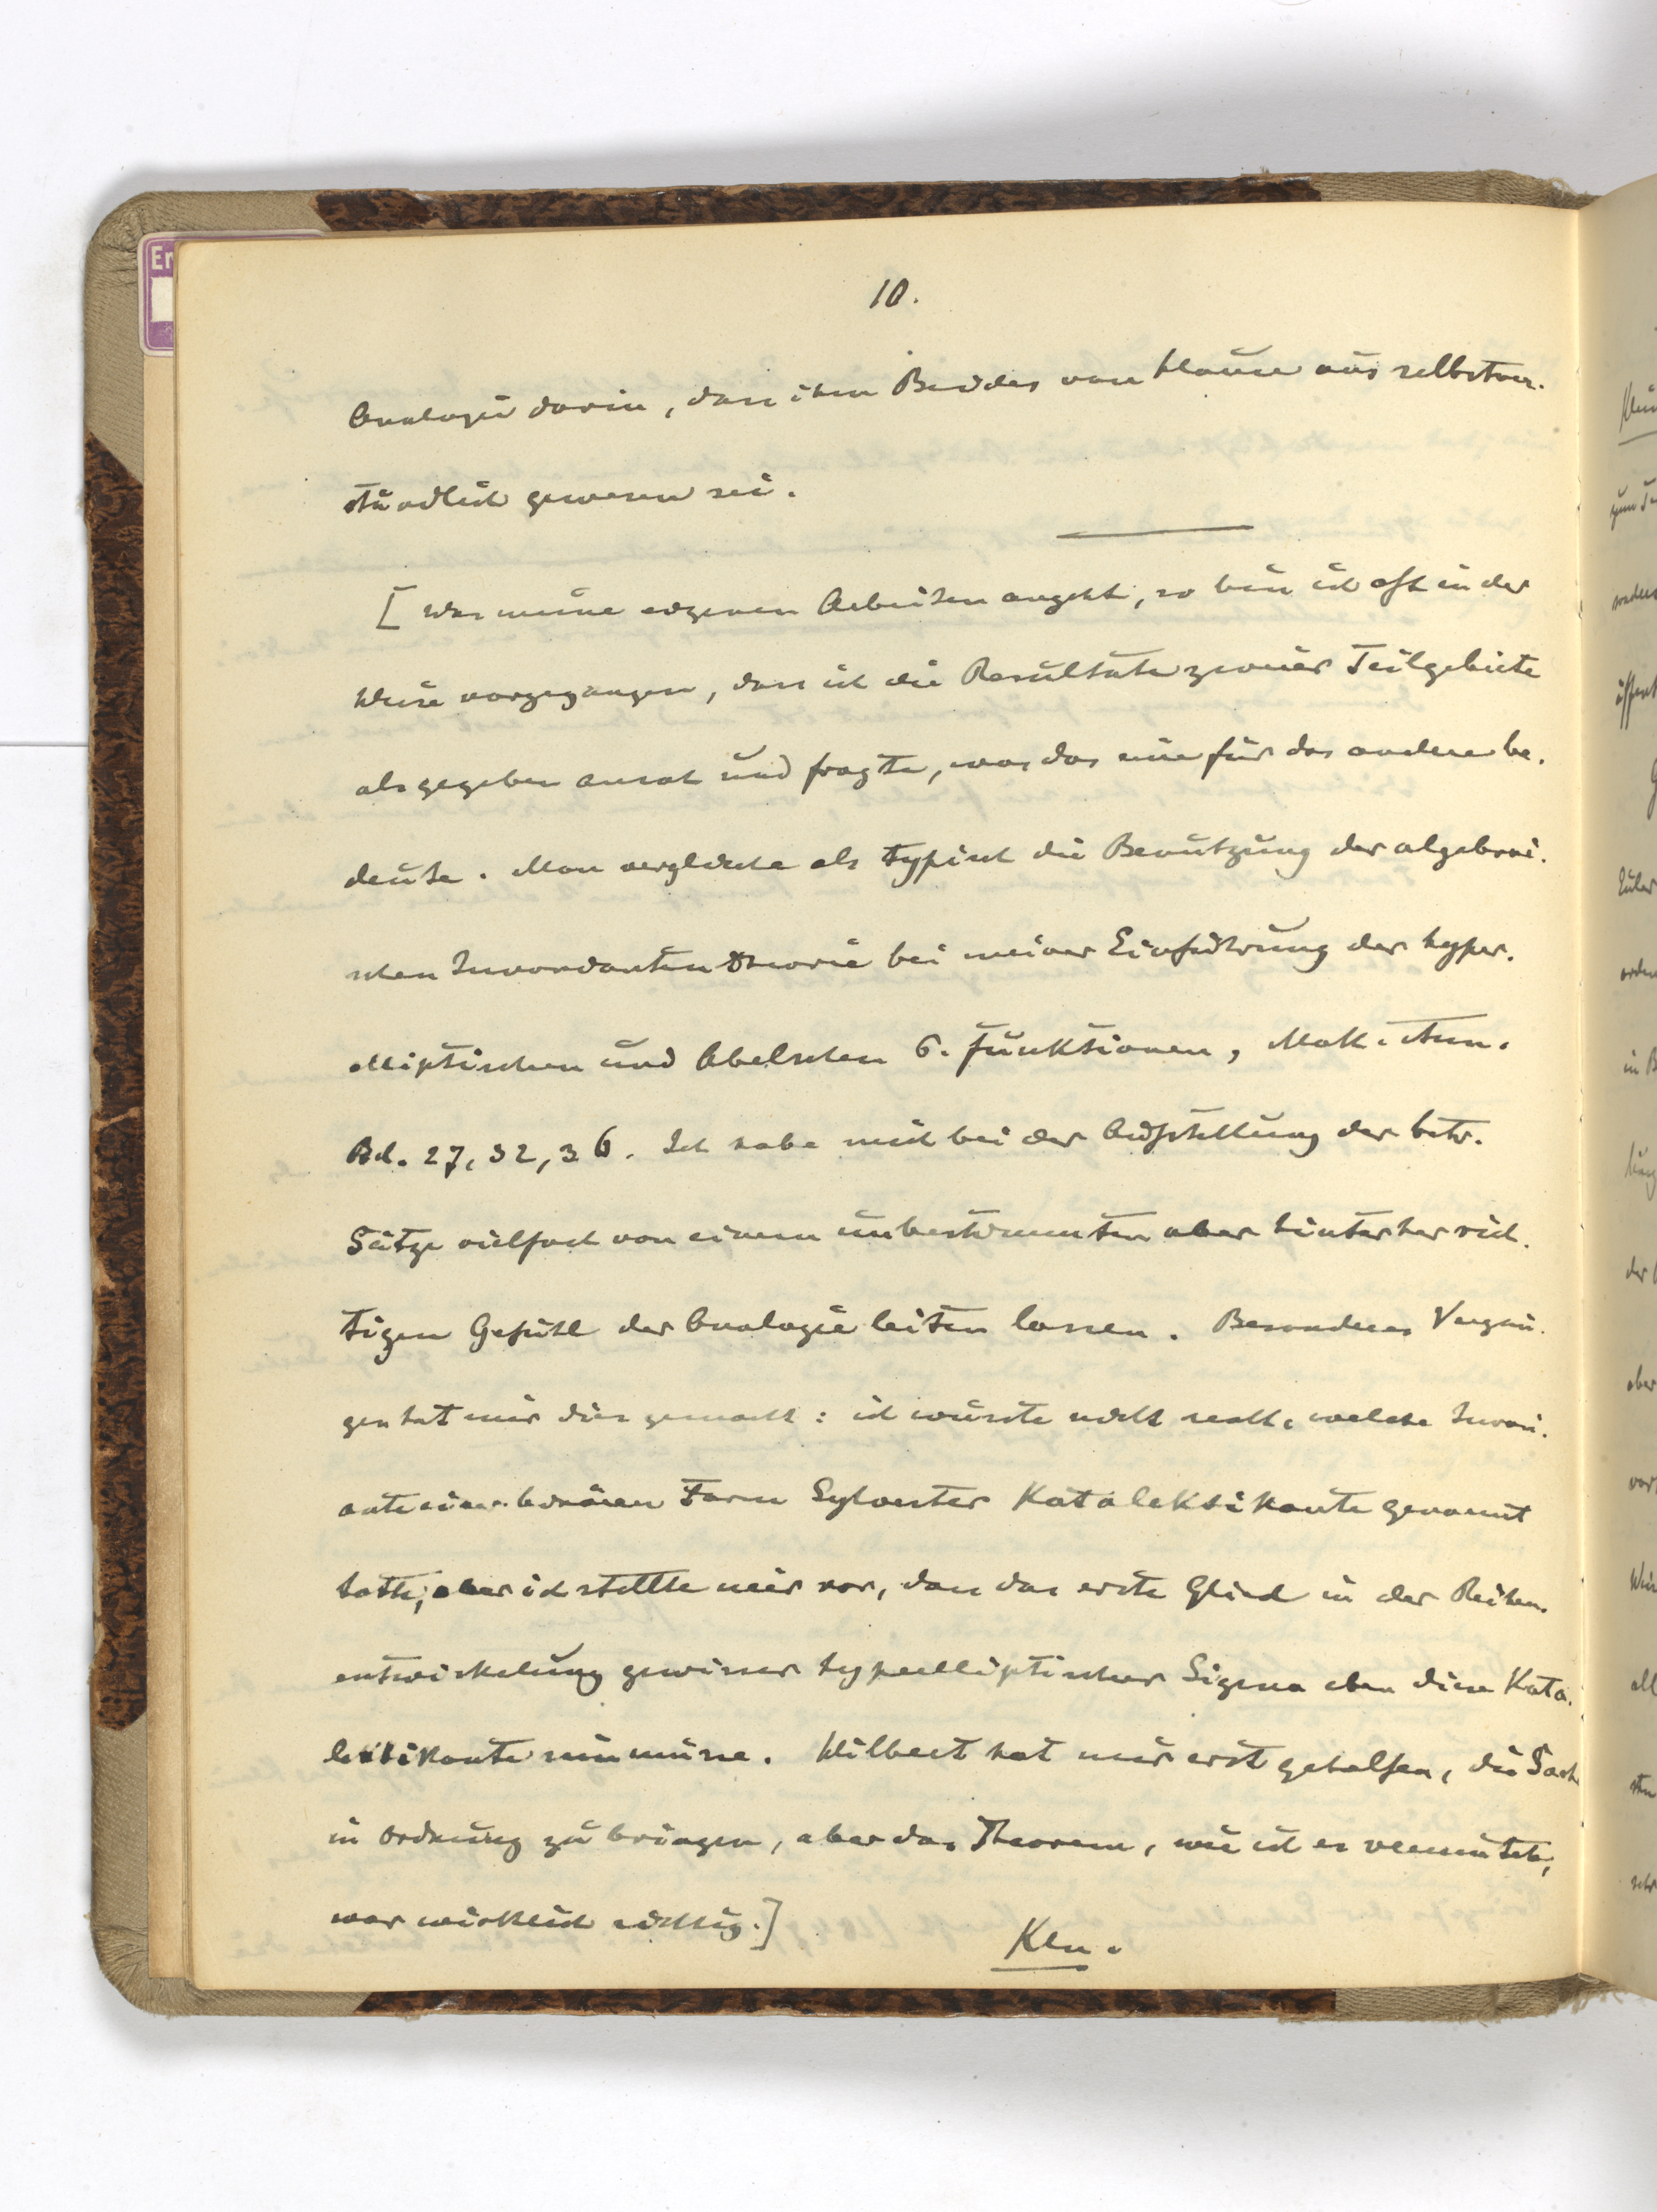 10.
Analogie darin, dass ihm Beides von Hause aus selbstver-
ständlich gewesen sei.
[Was meine eigenen Arbeiten angeht, so bin ich oft in der
Weise vorgegangen, dass ich die Resultate zweier Teilgebiete
als gegeben ansah und fragte, was das eine für das andere be-
deute. Man vergleiche als typisch die Benutzung der algebrai-
schen Invariantentheorie bei meiner Einführung der hyper-
elliptischen und Abelschen σ-Funktionen, Math. Ann.
Bd. 27, 32, 36. Ich habe mich bei der Aufstellung der betr.
Sätze vielfach von einem unbestimmten aber hinterher rich-
tigen Gefühl der Analogie leiten lassen. Besonderes Vergnü-
gen hat mir dies gemacht: ich wusste nicht recht, welche Invari-
ante einer binären Form Sylvester Katalektikante genannt
hatte, aber ich stellte mir vor, dass das erste Glied in der Reihen-
entwickelung gewisser hyperelliptischer Sigma eben diese Kata-
lektikante sein müsse. Hilbert hat mir erst geholfen, die Sache
in Ordnung zu bringen, aber das Theorem, wie ich es vermutete,
war wirklich richtig.]
Kln.